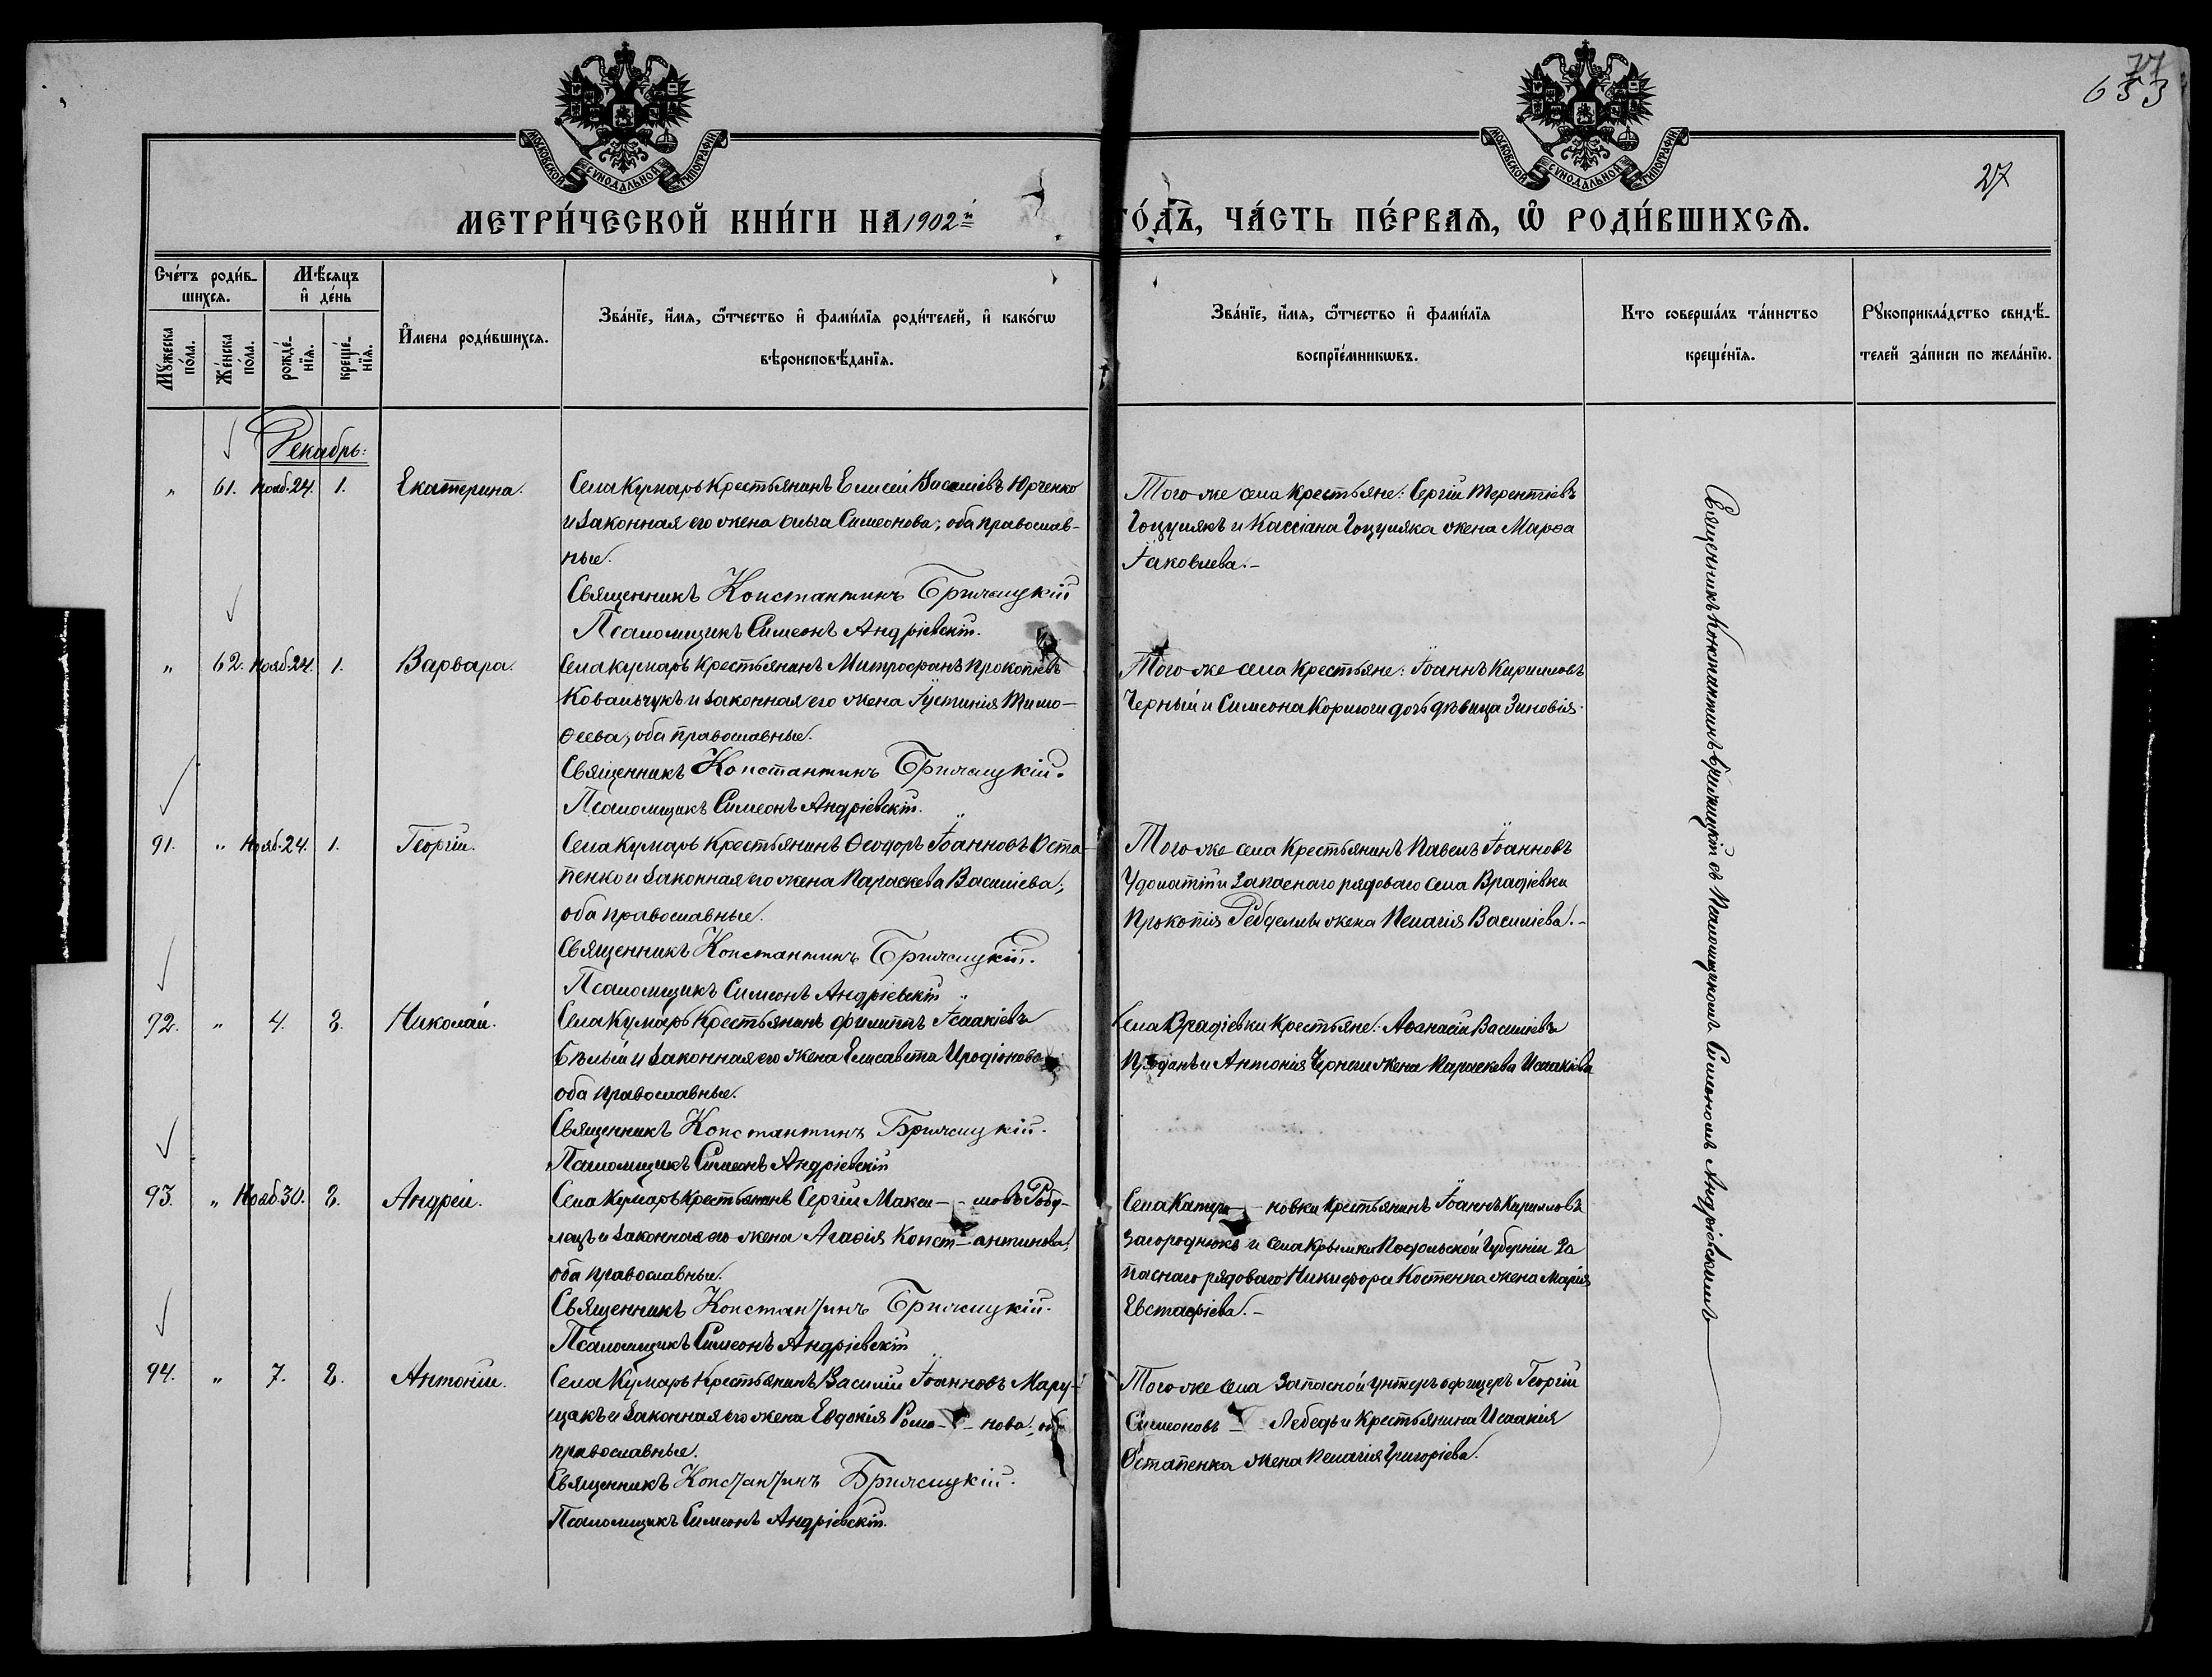 МОСКОВСКОЙ СѴНОДАЛЬНОЙ ТИПОГРАФІИ
МОСКОВСКОЙ СѴНОДАЛЬНОЙ ТИПОГРАФІИ
77
653
27
МЕТРИ́ЧЕСКОЙ КНИ́ГИ НА 1902й
ГО́ДЪ, ЧА́СТЬ ПЕ́РВАѦ, Ѡ҆ РОДИ́ВШИХСѦ.
Сче́тъ роди́в-
шихсѧ.
Мѣ́сѧцъ
и҆ де́нь
Мꙋ́жеска
по́ла.
Же́нска
по́ла.
рожде́-
нїѧ.
креще́-
нїѧ.
И҆мена роди́вшихсѧ.
Зва́нїе, и҆́мѧ, ѻ҆́тчество и҆ фами́лїѧ роди́телей, и҆ како́гѡ
вѣроисповѣ́данїѧ.
Зва́нїе, и҆́мѧ, ѻ҆́тчество и҆ фами́лїѧ
воспрїе́мникѡвъ.
Кто соверша́лъ та́инство
креще́нїѧ.
Рꙋкоприкла́дство свидѣ́-
телей за́писи по жела́нїю.
Декабрь:
„ 61. Нояб. 24. 1. Екатерина.
Села Кумарь крестьянинъ Елисей Василіевъ Юрченко
и законная его жена Ольга Симеонова; оба православ-
ные.
Священникъ Константинъ Брижицкій
Псаломщикъ Симеонъ Андріевскій.
Того же села крестьяне: Сергій Терентіевъ
Гоцулякъ и Кассіана Гоцуляка жена Марѳа
Іаковлева.-
„ 62. Нояб. 24. 1. Варвара.
Села Кумарь крестьянинъ Митрофанъ Прокопіевъ
Ковальчукъ и законная его жена Іустинія Тимо-
ѳеева, оба православные.
Священникъ Константинъ Брижицкій.
Псаломщикъ Симеонъ Андріевскій.
Того же села крестьяне: Іоаннъ Кирилловъ
Черный и Симеона дочь дѣвица Зиновія.
91. „ Нояб. 24. 1. Георгій.
Села Кумарь крестьянинъ Ѳеодоръ Іоанновъ Оста-
пенко и законная его жена Параскева Василіева;
оба православные.
Священникъ Константинъ Брижицкій.
Псаломщикъ Симеонъ Андріевскій
Того же села крестьянинъ Павелъ Іоанновъ
и запаснаго рядоваго села Врадіевки
Прокопія жена Пелагія Василіева.-
92. „ 4. 8. Николай.
Села Кумарь крестьянинъ Филиппъ Ісаакіевъ
Бѣлый и законная его жена Елисавета Иродіонова
оба православные.
Священникъ Константинъ Брижицкій.
Псаломщикъ Симеонъ Андріевскій
Села Врадіевки крестьяне: Аѳанасій Василіевъ
Проданъ и Антонія жена Параскева Исаакіева
93. „ Нояб. 30. 8. Андрей.
Села Кумарь крестьянинъ Сергій Макси- - мовъ
и законная его жена Агаѳія Конст- антинова;
оба православные.
Священникъ Константинъ Брижицкій.
Псаломщикъ Симеонъ Андріевскій
Села Катери- - новки крестьянинъ Іоаннъ Кирилловъ
Загороднюкъ и села Крымки Подольской губерніи за
паснаго рядоваго Никифора Костенка жена Марія
Евстафіева.-
94. „ 7. 8. Антоній.
Села Кумарь крестьянинъ Василій Іоанновъ Мару-
щакъ и законная его жена Евдокія Рома- - нова; оба
православные.
Священникъ Константинъ Брижицкій.
Псаломщикъ Симеонъ Андріевскій.
Того же села запасной унтеръ офицеръ Георгій
Симеоновъ - Лебедь и крестьянина Исаакія
Остапенка жена Пелагія Григоріева.
Священникъ Константинъ Брижицкій съ Псаломщикомъ Симеономъ Андріевскимъ